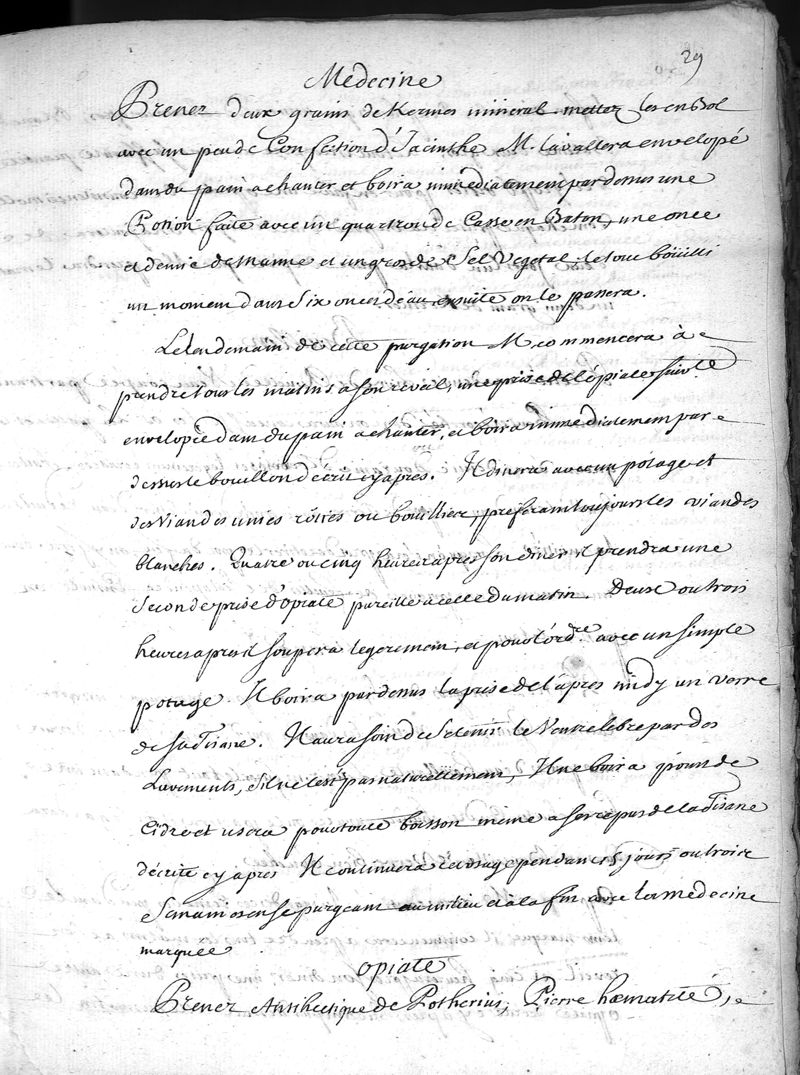 29
Médecine
Prenez deux grains de Kermes minéral mettez les en Bol
avec un peu de Confection d'Jacinthe M. lavallera envelopé
dans du pain a chanter et boira immediatement par dessus une
Potion faite avec un quartron de Casse en Baton, une once
et demie de manne et un gros de Sel Vegetal, le tout boüilli
un moment dans Six onces d'eau ensuite on le passera.
Le lendemain de cette purgation M. commencera à
prendre tous les matins a son reveil, une prise de l'opiate suiv.te
envelopée dans du pain a chanter, et boira immediatement par
dessus le bouillon décrit cy apres. Il dinera avec un potage et
des Viandes unies rôties ou bouillies, préferant toujours les viandes
blanches. Quatre ou cinq heures apres son diner il prendra une
seconde prise d'opiate pareille a celle du matin. Deux ou trois
heures apres il soupera legerement, et pour l'ord.re avec un simple
potage. Il boira par dessus la prise de l'apres midy un verre
de sa Tisane. Il aura soin de se tenir le Ventre libre par des
Lavements, s'il ne l'est pas naturellement, Il ne boira point de
Cidre et usera pour toute boisson même a ses repas de la Tisane
décrite cy apres Il continuera cet usage pendant 15 jours ou trois
Semaines en se purgeant au milieu et a la fin avec la medecine
marquée
opiate
Prenez Antihectique de Potherius, Pierre hœmatité,